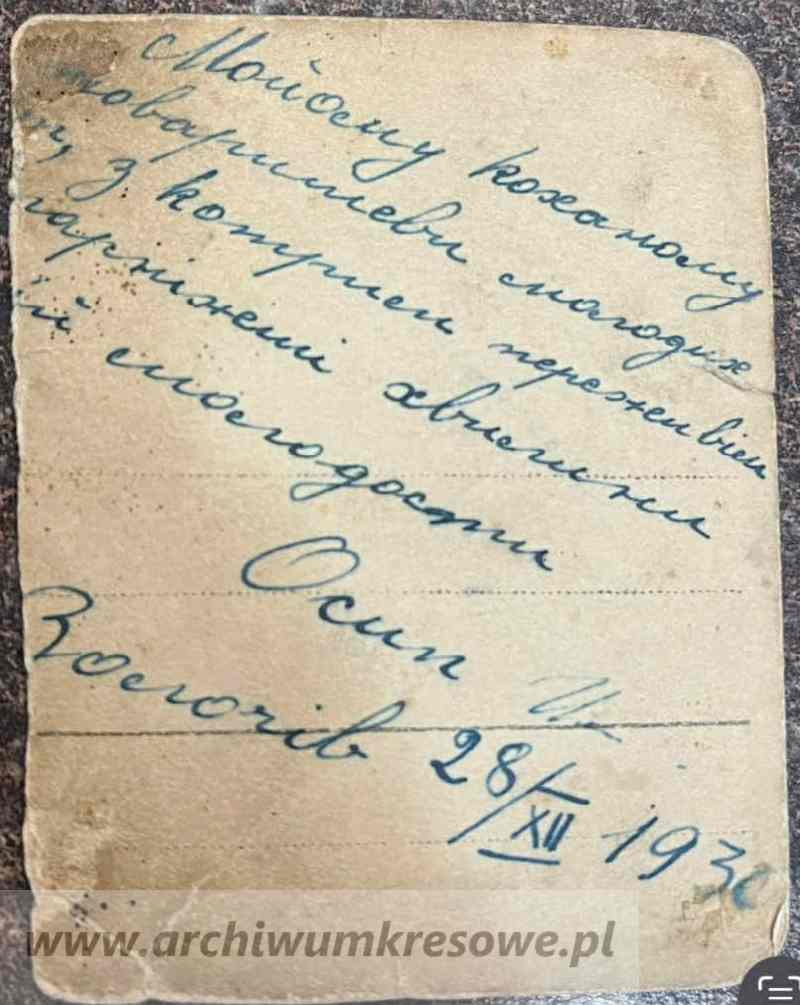 Мойому коханому
товаришеви молодих
з котрим пережив вім
хвилини
молодости
Осип
Золочів 28/XII 193
www.archiwumkresowe.pl